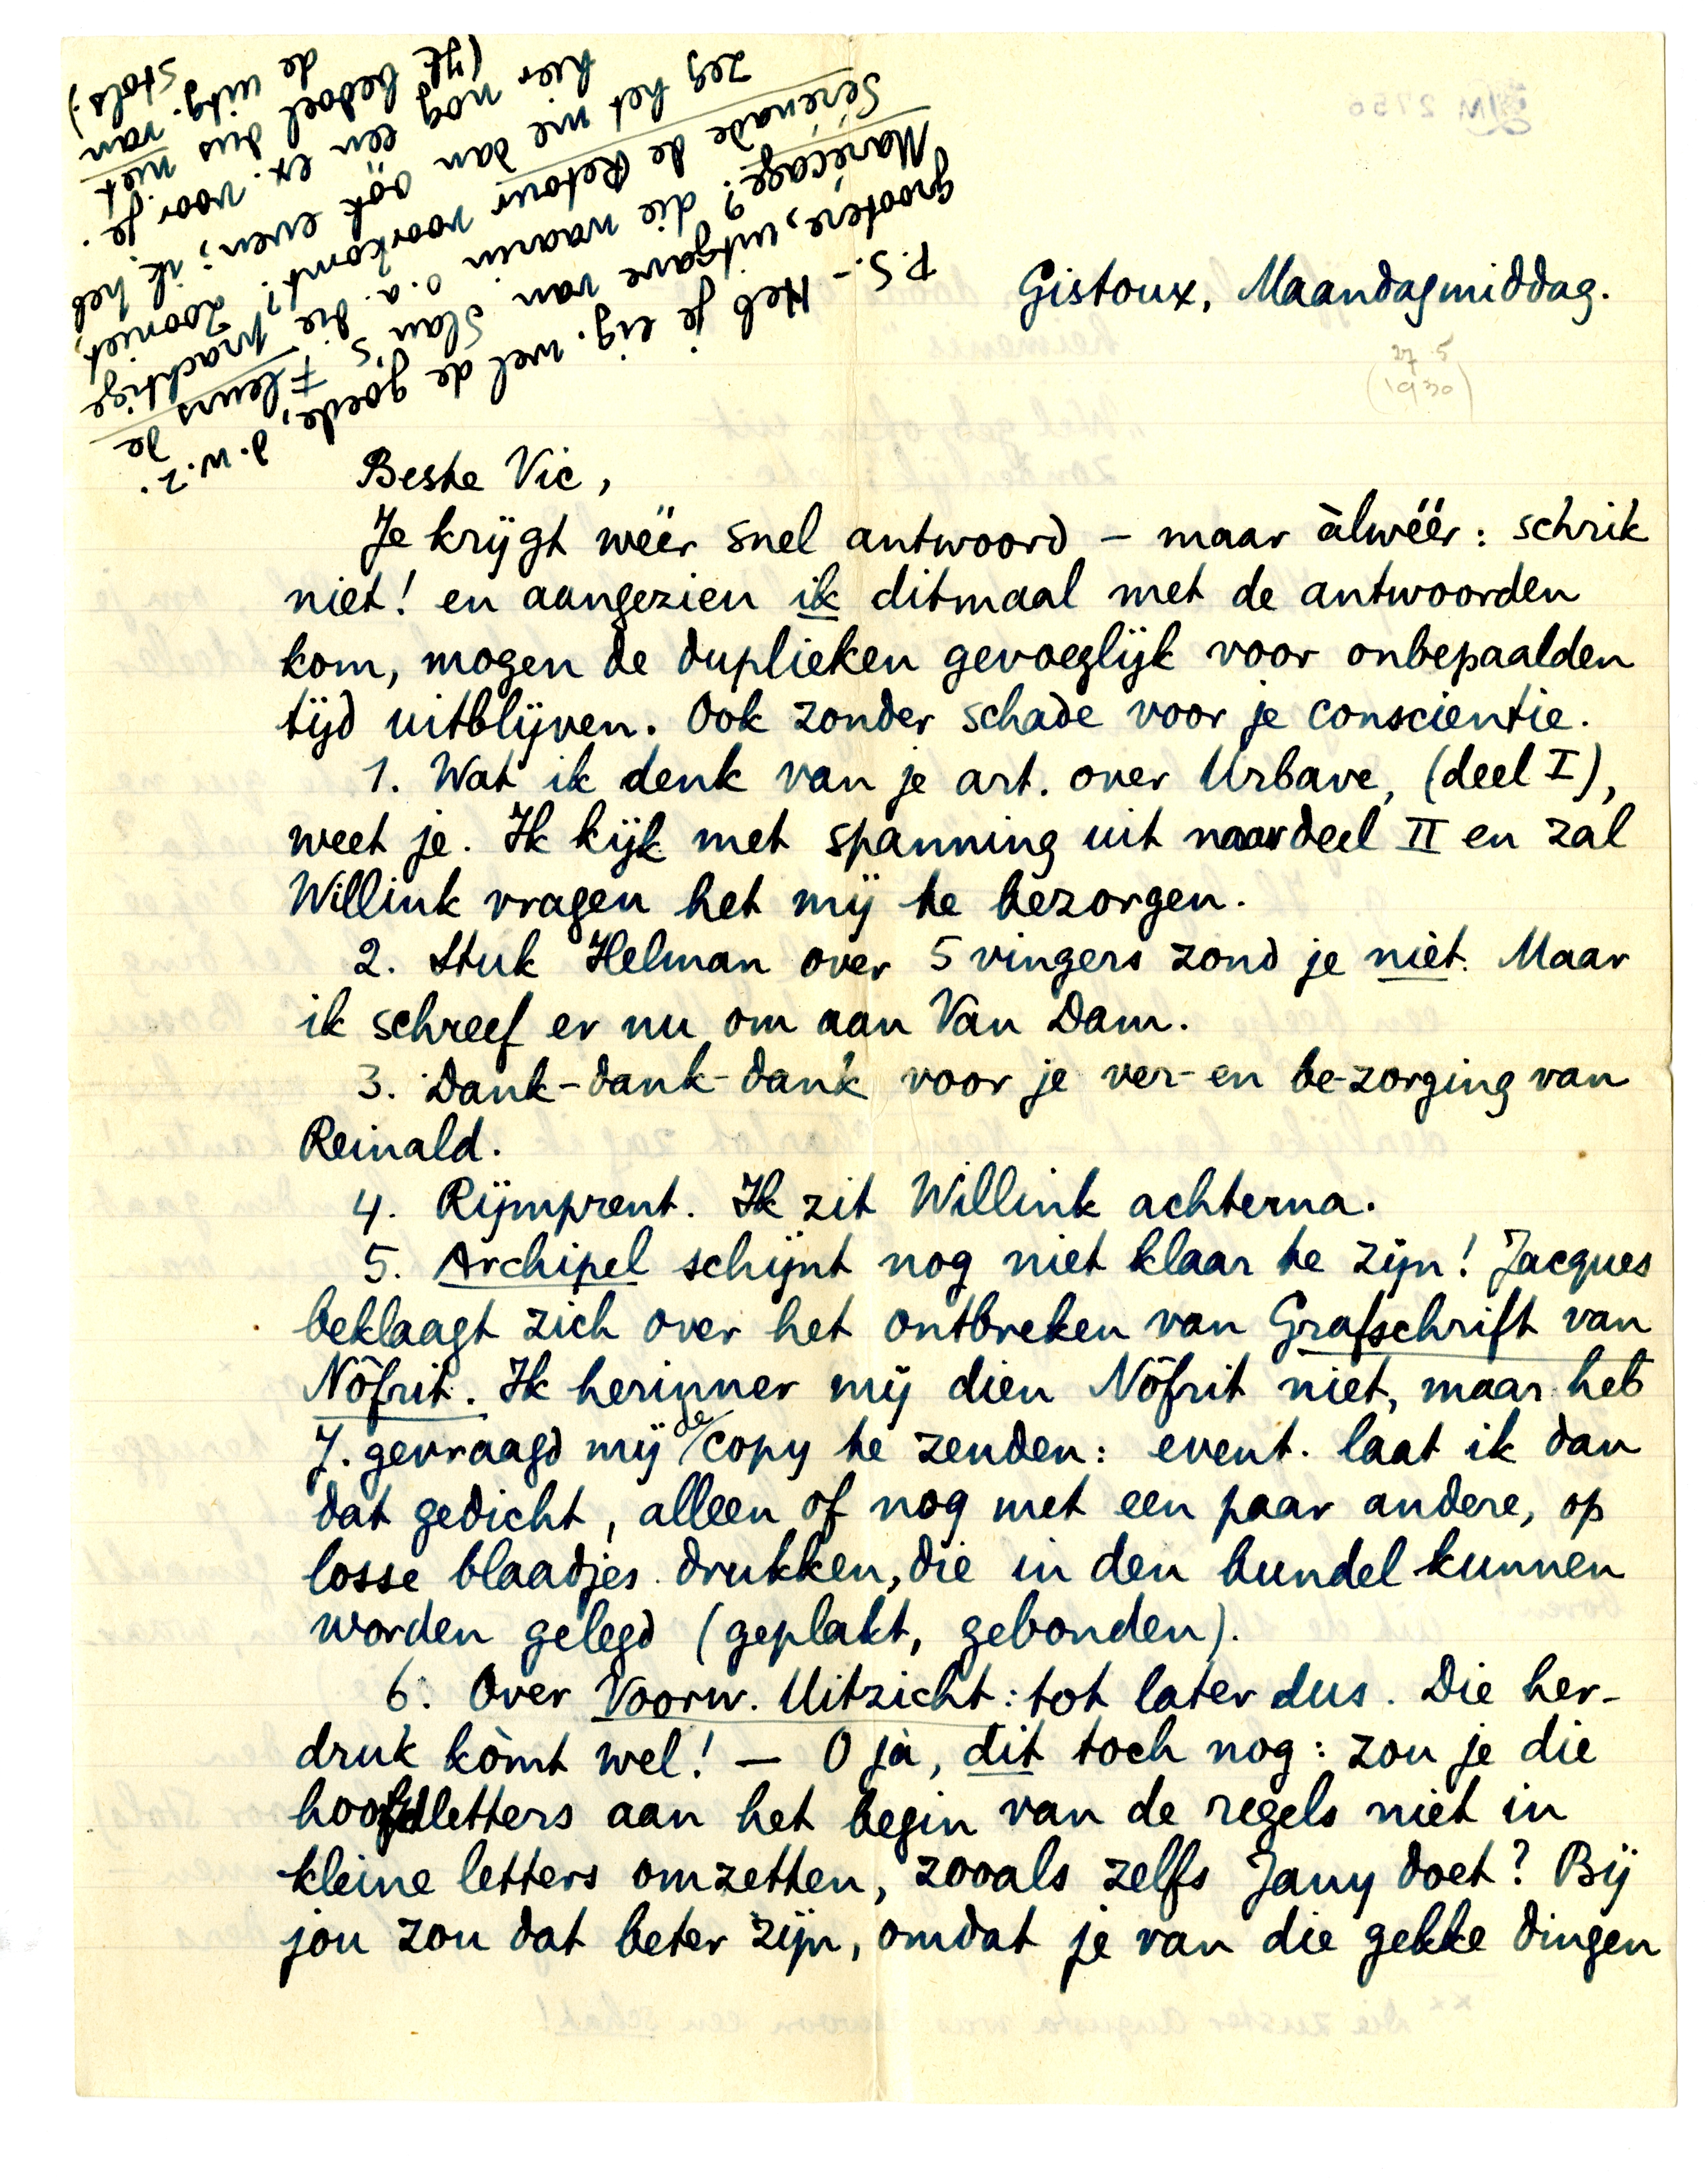 Gistoux, Maandagmiddag.
(27 5
1930)
Beste Vic,
Je krijgt wéér snel antwoord – maar àlwéér: schrik
niet! en aangezien ik ditmaal met de antwoorden
kom, mogen de duplieken gevoeglijk voor onbepaalden
tijd uitblijven. Ook zonder schade voor je conscientie.
1. Wat ik denk van je art. over Urbave, (deel I),
weet je. Ik kijk met spanning uit naar deel II en zal
Willink vragen het mij te bezorgen.
2. Stuk Helman over 5 vingers zond je niét. Maar
ik schreef er nu om aan Van Dam.
3. Dank-dank-dank voor je ver- en be-zorging van
Reinald.
4. Rijmprent. Ik zit Willink achterna.
5. Archipel schijnt nog niet klaar te zijn! Jacques
beklaagt zich over het ontbreken van Grafschrift van
Nôfrit. Ik herinner mij dien Nôfrit niet, maar heb
J. gevraagd mij de copy te zenden: event. laat ik dan
dat gedicht, alleen of nog met een paar andere, op
losse blaadjes drukken, die in den bundel kunnen
worden gelegd (geplakt, gebonden).
6. Over Voorw. Uitzicht: tot later dus. Die her-
druk kòmt wel! — O ja, dit toch nog: zou je die
hoofdletters aan het begin van de regels niet in
kleine letters omzetten, zooals zelfs Jany doet? Bij
jou zou dat beter zijn, omdat je van die gekke dingen
P.S. – Heb je eig. wel de goede, d.w.z. de
grootere, uitgave van Slau's Fleurs de
Marécage? die waarin o.a. die prachtige
Sérénade de Retour voorkomt? Zooniet,
zeg het me dan óók even; ik heb
hier nog een ex. voor je.
(Ik bedoel dus niet van
de uitg. Stols.)